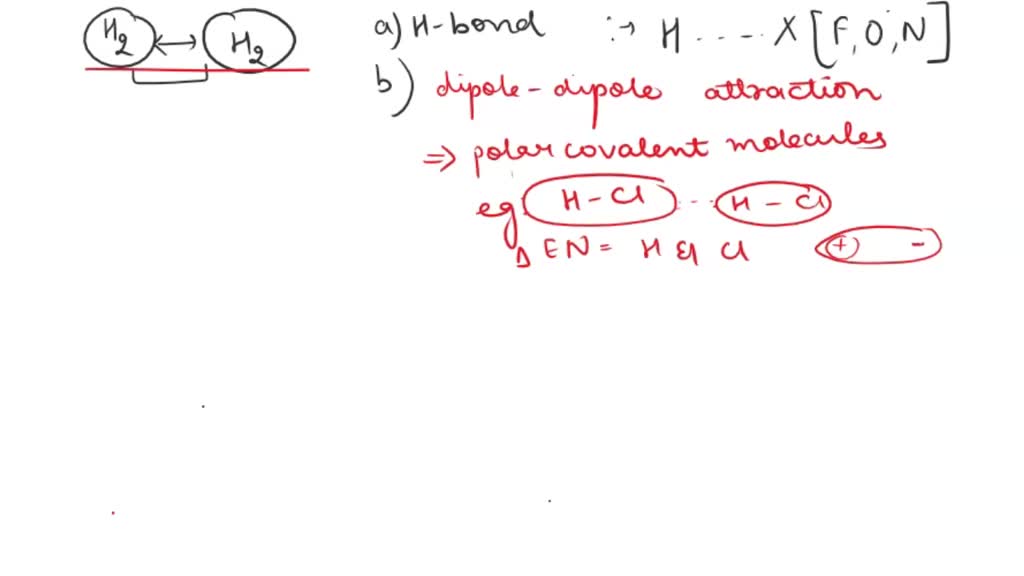 H2 ↔ H2
a) H-bond :→ H ..... X [F, O, N]
b) dipole-dipole attraction
⇒ polar covalent molecules
eg H-Cl ... H-Cl
Δ EN = H & Cl + -